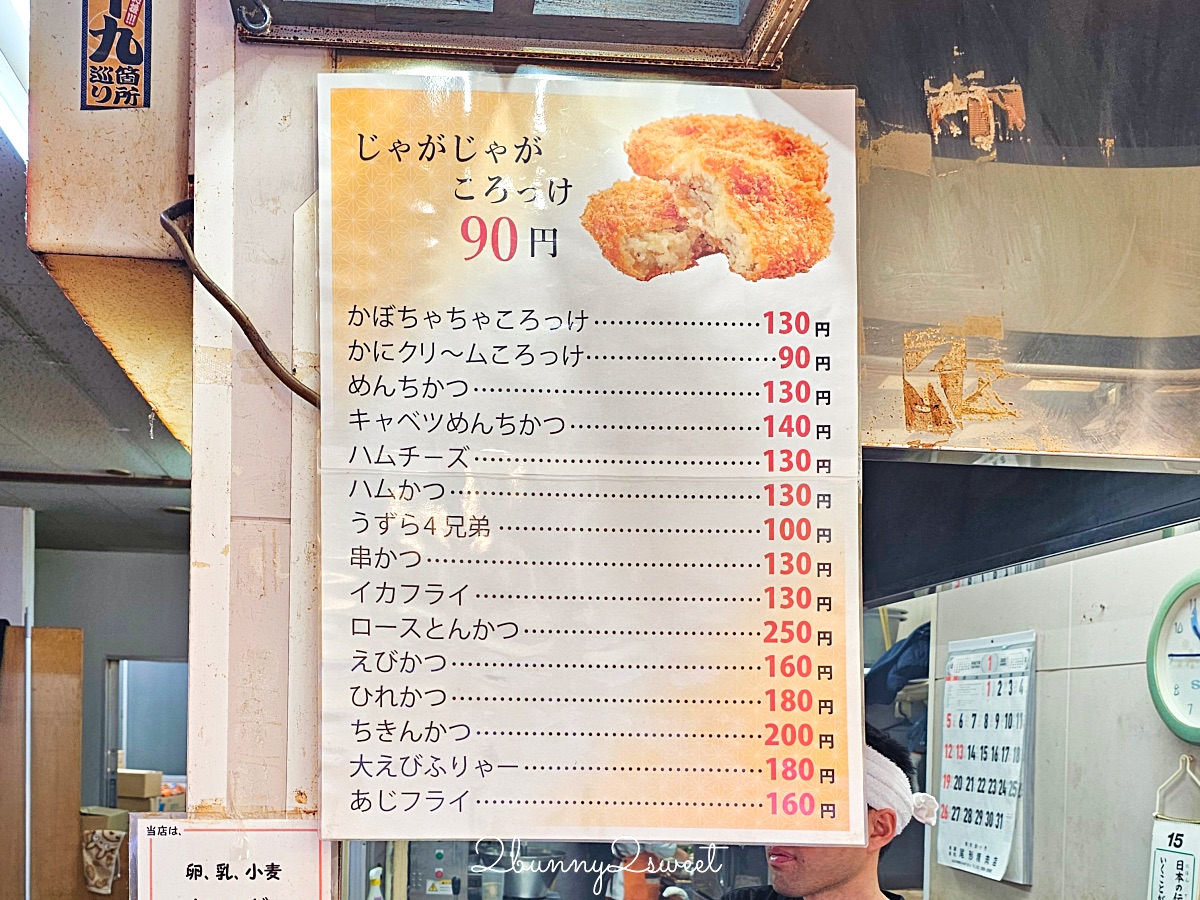 九
箇所
巡り
じゃがじゃが
ころっけ
90円
かぼちゃちゃころっけ…………………130円
かにクリ～ムころっけ…………………90円
めんちかつ…………………130円
キャベツめんちかつ…………………140円
ハムチーズ…………………130円
ハムかつ…………………130円
うずら4兄弟…………………100円
串かつ…………………130円
イカフライ…………………130円
ロースとんかつ…………………250円
えびかつ…………………160円
ひれかつ…………………180円
ちきんかつ…………………200円
大えびふりゃー…………………180円
あじフライ…………………160円
当店は、
卵、乳、小麦
2bunny2sweet
1
1 2 3 4
5 6 7 8 9 10 11
12 13 14 15 16 17 18
19 20 21 22 23 24 25
26 27 28 29 30 31
15
日本の伝
いくことが